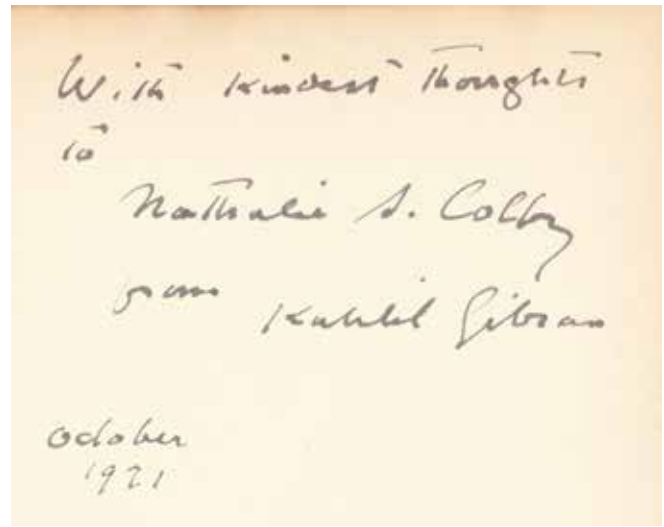 With kindest thoughts
to
Nathalie S. Colby
from Kahlil Gibran
October
1921